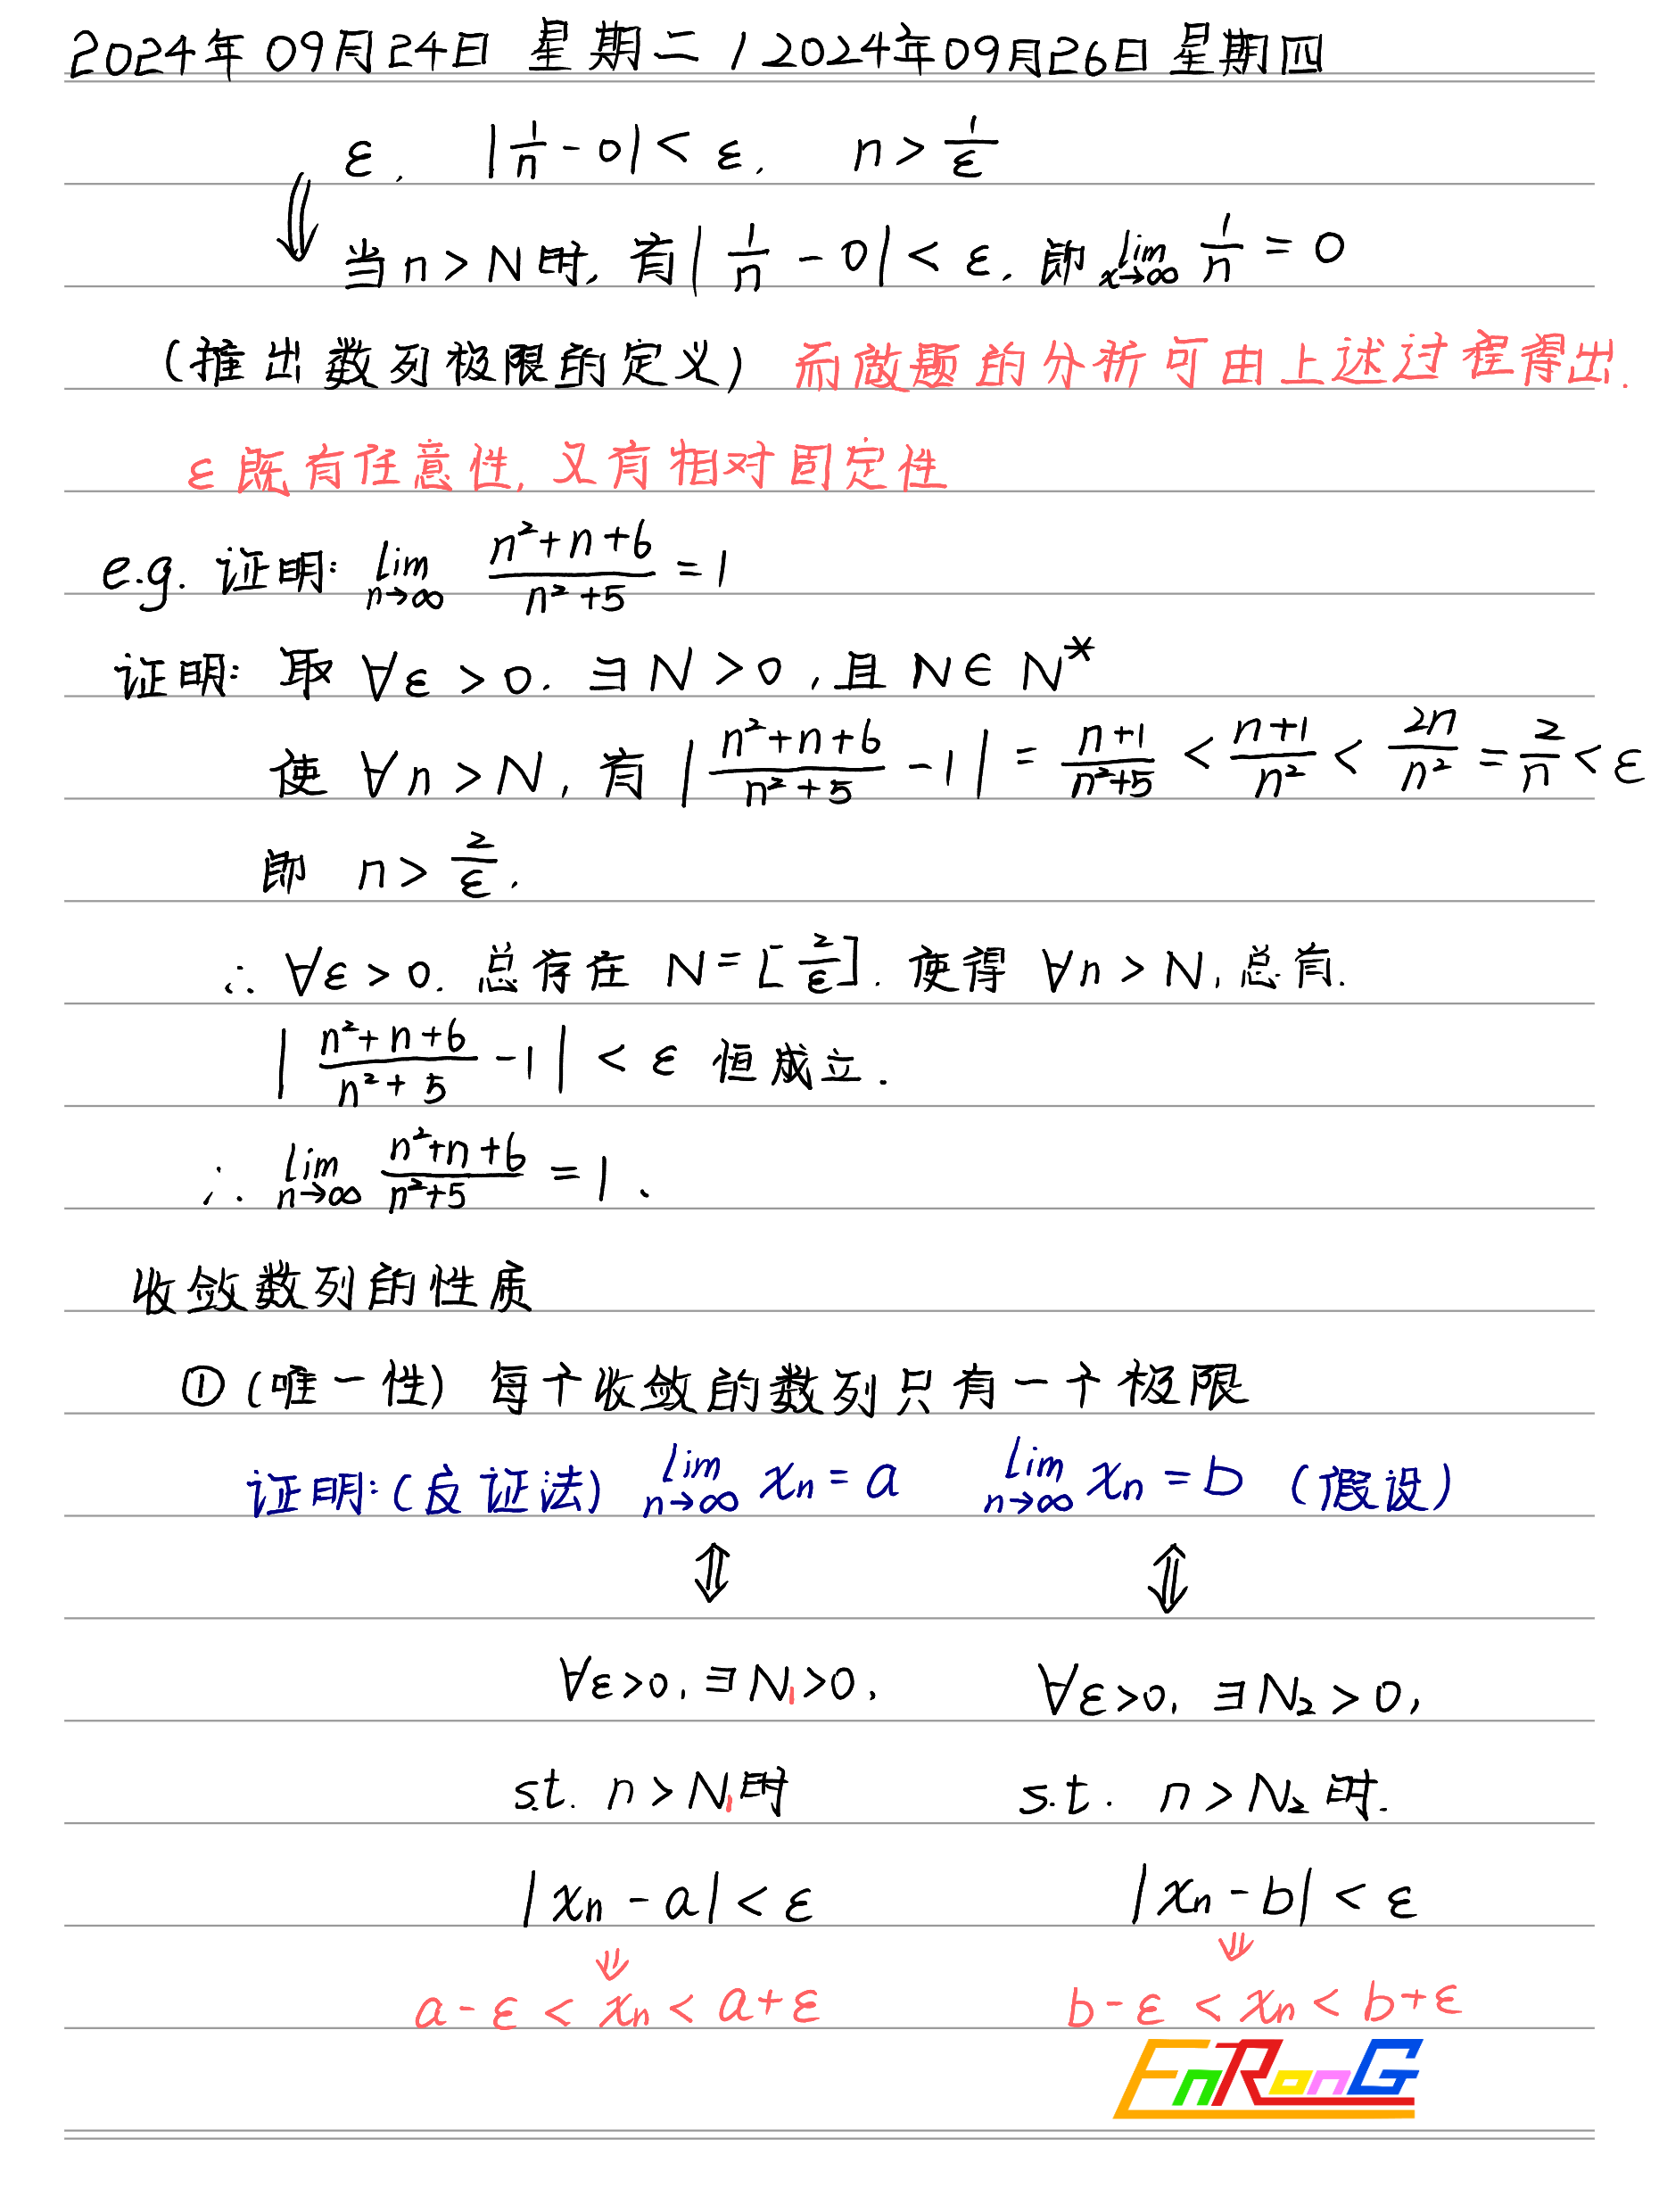 2024年09月24日 星期二 / 2024年09月26日 星期四
ε. |1/n - 0| < ε. n > 1/ε
⇓ 当 n > N 时, 有 | 1/n - 0 | < ε. 即 lim x→∞ 1/n = 0
(推出数列极限的定义) 而做题的分析可由上述过程得出.
ε 既有任意性, 又有相对固定性
e.g. 证明: lim n→∞ (n²+n+6)/(n²+5) = 1
证明: 取 ∀ε > 0. ∃ N > 0, 且 N ∈ N*
使 ∀n > N, 有 | (n²+n+6)/(n²+5) - 1 | = (n+1)/(n²+5) < (n+1)/n² < 2n/n² = 2/n < ε
即 n > 2/ε.
∴ ∀ε > 0. 总存在 N = [2/ε]. 使得 ∀n > N, 总有.
| (n²+n+6)/(n²+5) - 1 | < ε 恒成立.
∴ lim n→∞ (n²+n+6)/(n²+5) = 1 .
收敛数列的性质
① (唯一性) 每个收敛的数列只有一个极限
证明: (反证法) lim n→∞ xn = a lim n→∞ xn = b (假设)
⇕ ⇕
∀ε>0, ∃N₁>0, ∀ε>0, ∃N₂>0,
s.t. n > N₁时 s.t. n > N₂ 时.
|xn - a| < ε |xn - b| < ε
⇓ ⇓
a-ε < xn < a+ε b-ε < xn < b+ε
EnRonG